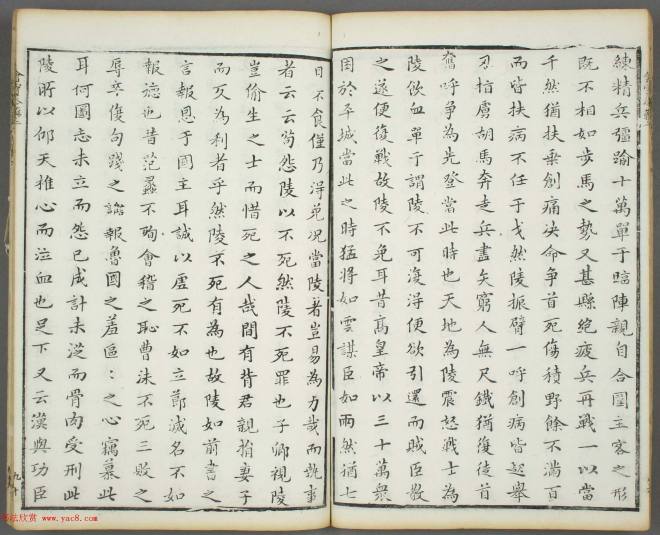 練精兵彊踰十萬單于臨陣親自合圍主客之形
既不相如步馬之勢又甚縣絕疲兵再戰一以當
千然猶扶乗創痛决命争首死傷積野餘不滿百
而皆扶病不任干戈然陵振臂一呼創病皆起舉
刃指虜胡馬奔走兵盡矢窮人無尺鐵猶復徒首
奮呼爭為先登當此時也天地為陵震怒戰士為
陵飲血單于謂陵不可復得便欲引還而賊臣教
之遂便復戰故陵不免耳昔髙皇帝以三十萬衆
困於平城當此之時猛將如雲謀臣如雨然猶七
日不食僅乃得免况當陵者豈易為力哉而執事
者云云苟怨陵以不死然陵不死罪也子卿視陵
豈偷生之士而惜死之人哉聞有背君親捐妻子
而反為利者乎然陵不死有為也故陵如前書之
言報恩于國主耳誠以虚死不如立節滅名不如
報德也昔范蠡不殉會稽之恥曹沬不死三敗之
辱卒復句踐之讎報魯國之羞區〻之心竊慕此
耳何圖志未立而怨已成計未從而骨肉受刑此
陵所以仰天椎心而泣血也足下又云漢與功臣
书法欣赏 www.yac8.com